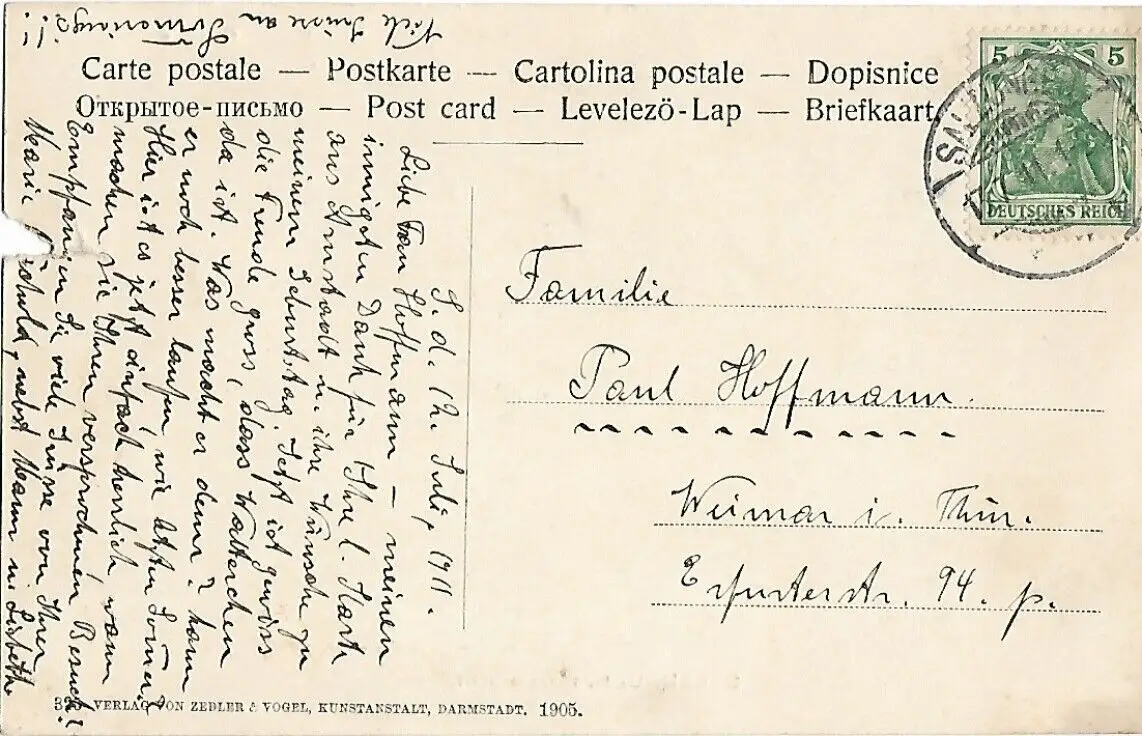 Carte postale — Postkarte — Cartolina postale — Dopisnice
Открытое-письмо — Post card — Levelező-Lap — Briefkaart
5 5
DEUTSCHES REICH
S. d. 12. Juli, 1911.
Liebe Frau Hoffmann — meinen
innigsten Dank für Ihre l. Karte
aus Arnstadt u. ihre Wünsche zu
meinem Geburtstag. Jetzt ist gewiss
die Freude gross, dass Walterchen
da ist. Was macht er denn? kann
er noch besser laufen, wie letzten Sommer?
Hier ist es jetzt einfach herrlich, wann
machen sie Ihren versprochnen Besuch?
Empfangen Sie viele Grüsse von Ihrer
Marie nebst Mann u. Lisbeth.
Viele Grüsse an !!
Familie
Paul Hoffmann.
Weimar i. Thür.
Erfurterstr. 94. p.
VERLAG VON ZEDLER & VOGEL, KUNSTANSTALT, DARMSTADT. 1905.